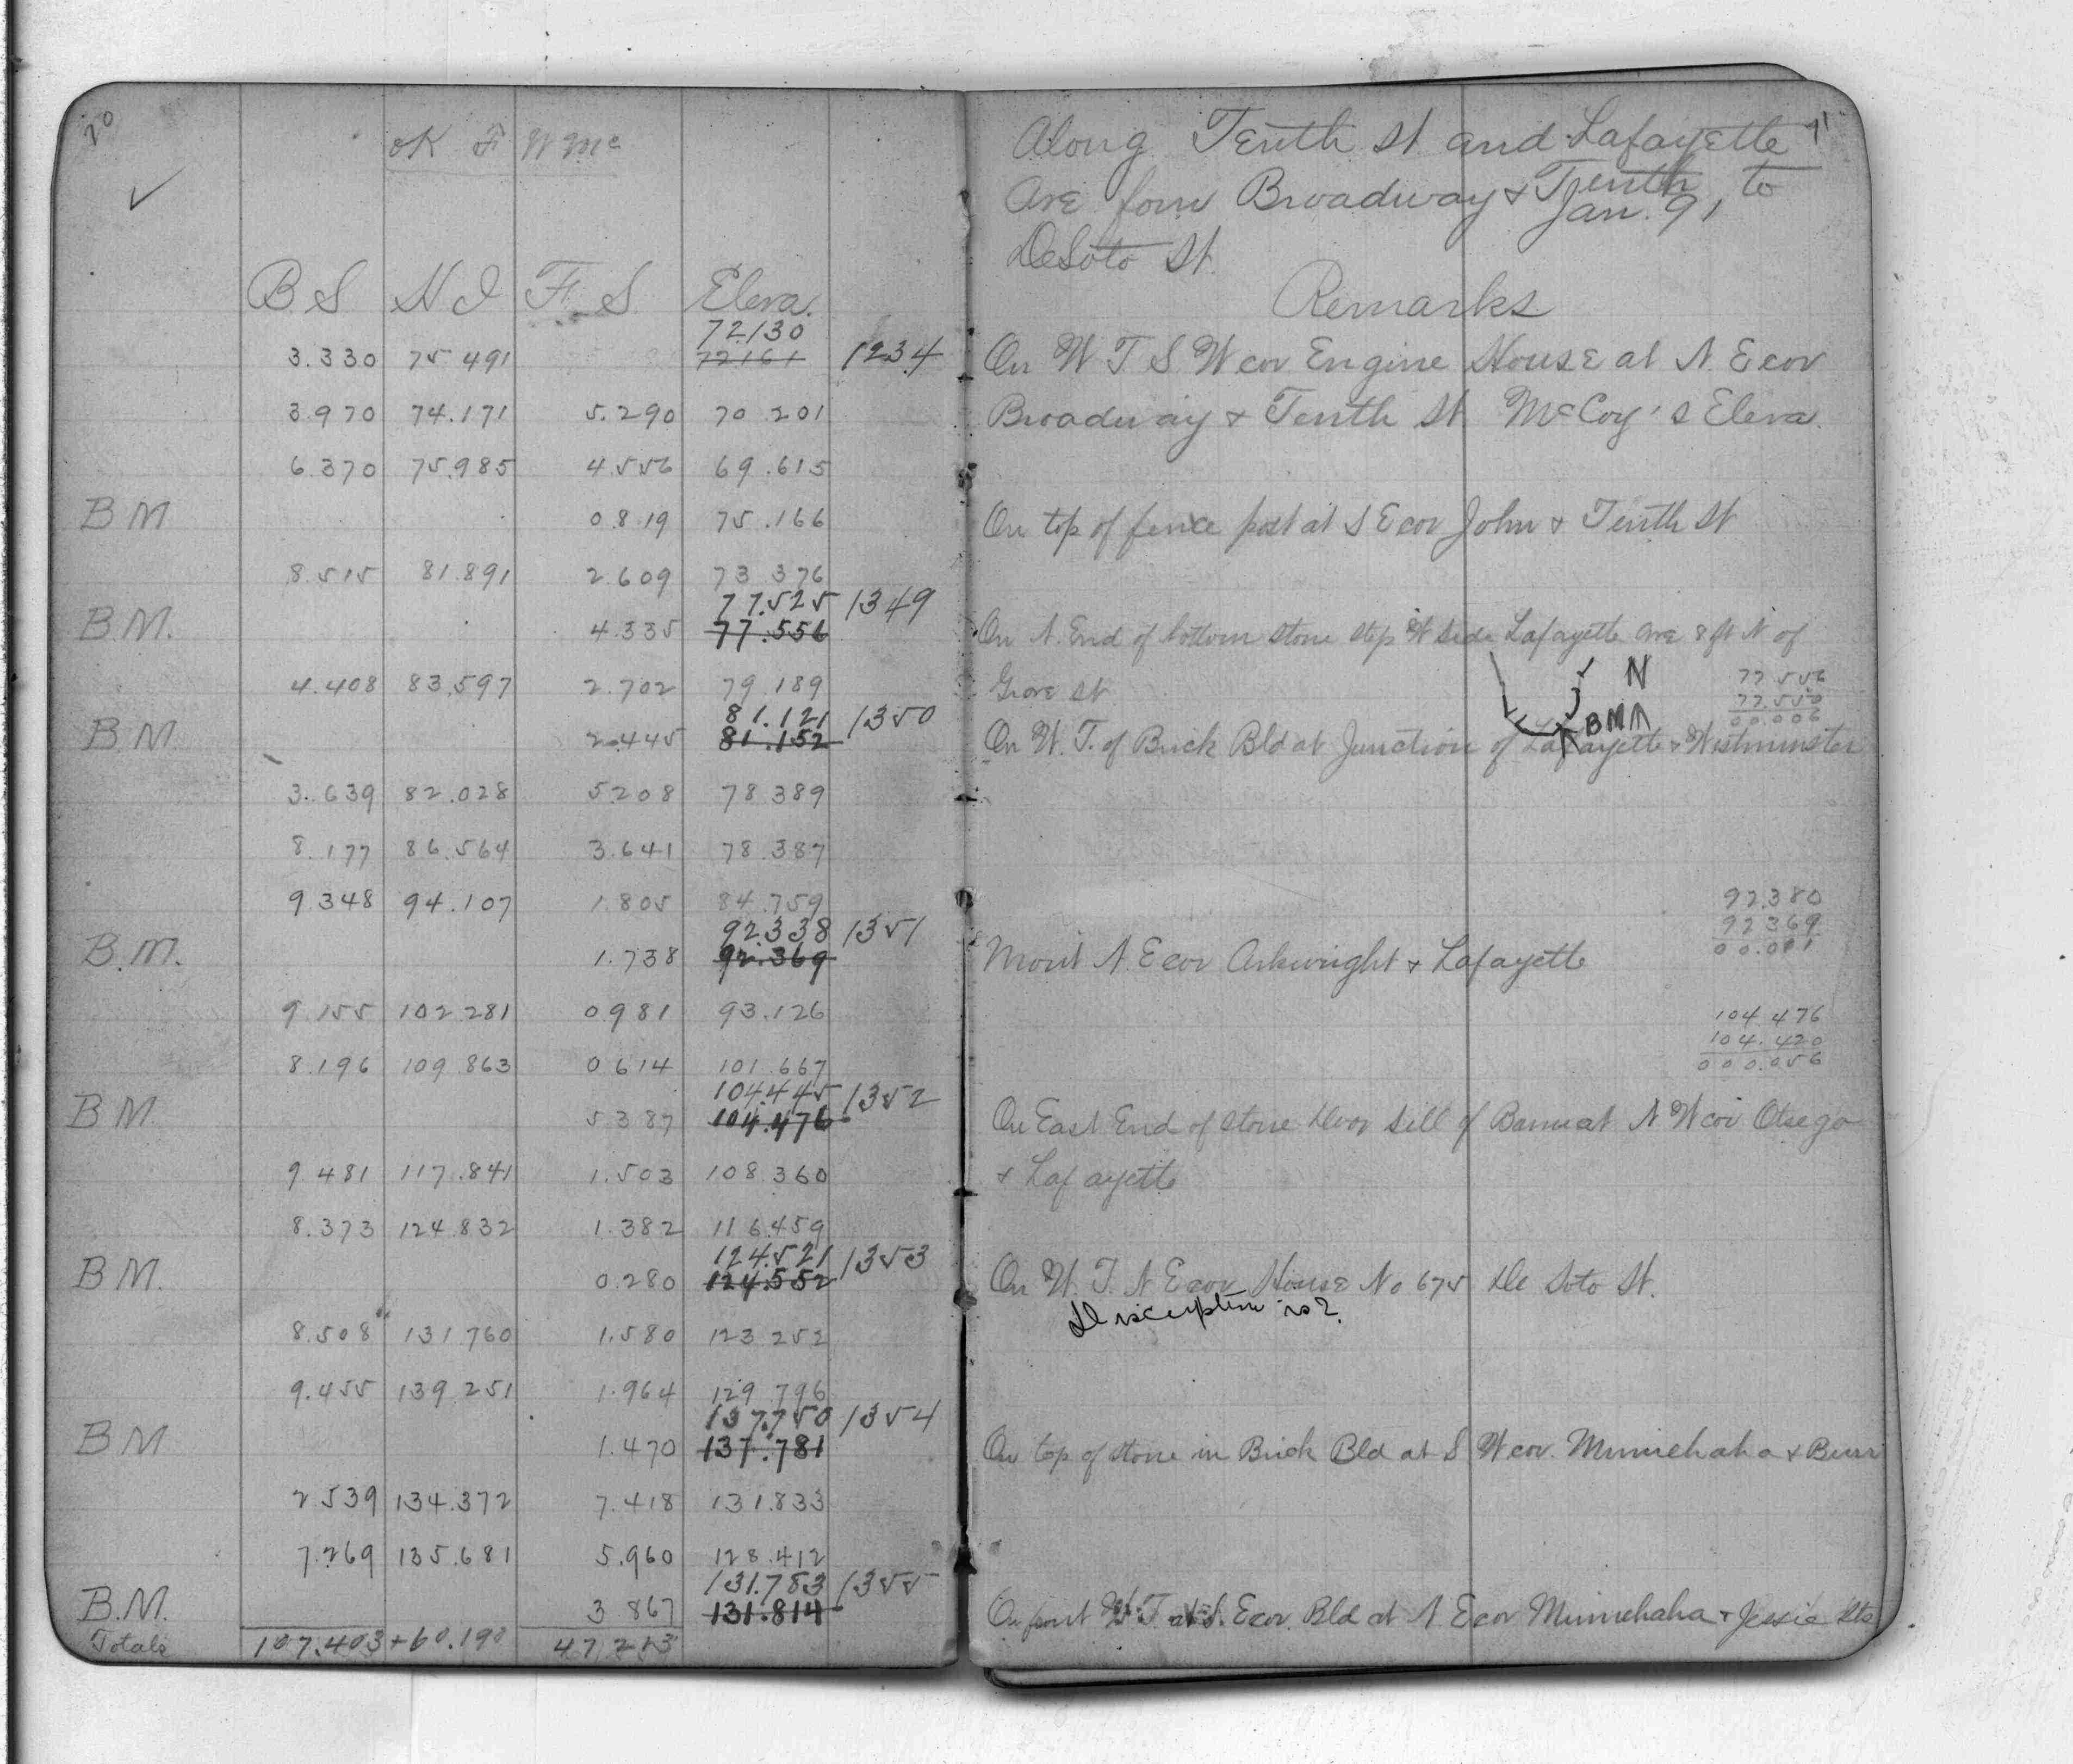 20
oK F W Mc
✓
B S H I F. S. Eleva.
72.130
3.330 75 491 72161 1234
3.970 74.171 5.290 70 201
6.370 75.985 4.556 69.615
B M 0.819 75.166
8.515 81.891 2.609 73 376
77.525 1349
B M. 4.335 77.556
4.408 83.597 2.702 79 189
81.121 1350
B M 2.445 81.152
3.639 82.028 5208 78 389
8.177 86.564 3.641 78.387
9.348 94.107 1.805 84.759
92.338 1351
B.M. 1.738 92.369
9.155 102 281 0.981 93.126
8.196 109 863 0 614 101.667
104.445 1352
B M. 5 387 104.476
9 481 117.841 1.503 108 360
8.373 124.832 1.382 116.459
124.521 1353
B M. 0.280 124.552
8.508 131.760 1.580 123 252
9.455 139 251 1.964 129.796
137.750 1354
B M 1.470 137.781
2 539 134.372 7.418 131.833
7.269 135.681 5.960 128.412
131.783 1355
B.M. 3 867 131.814
Totals 107.403 + 60.190 47.213
Along Tenth St and Lafayette
Ave from Broadway & Tenth to
Jan. 91
DeSoto St.
Remarks
On W T S. W cor Engine House at N. E cor
Broadway & Tenth St McCoy's Eleva.
On top of fence post at S E cor John & Tenth St
On N. End of bottom stone step W side Lafayette Ave 8 ft N of
Grove St
N
77 556
77.550
00.006
BM
On W. T. of Brick Bld at Junction of Lafayette & Westminster
92.380
92369
00.011
Mont N. E cor Arkwright & Lafayette
104 476
104.420
000.056
On East End of stone door sill of Barn at N W cor Otsego
& Lafayette
On W. T. N E cor House No 675 De Soto St.
Discription no?
On top of stone in Brick Bld at S W cor. Minnehaha & Burr
On front W. T. at S. E cor. Bld at N E cor Minnehaha & Jessie Sts